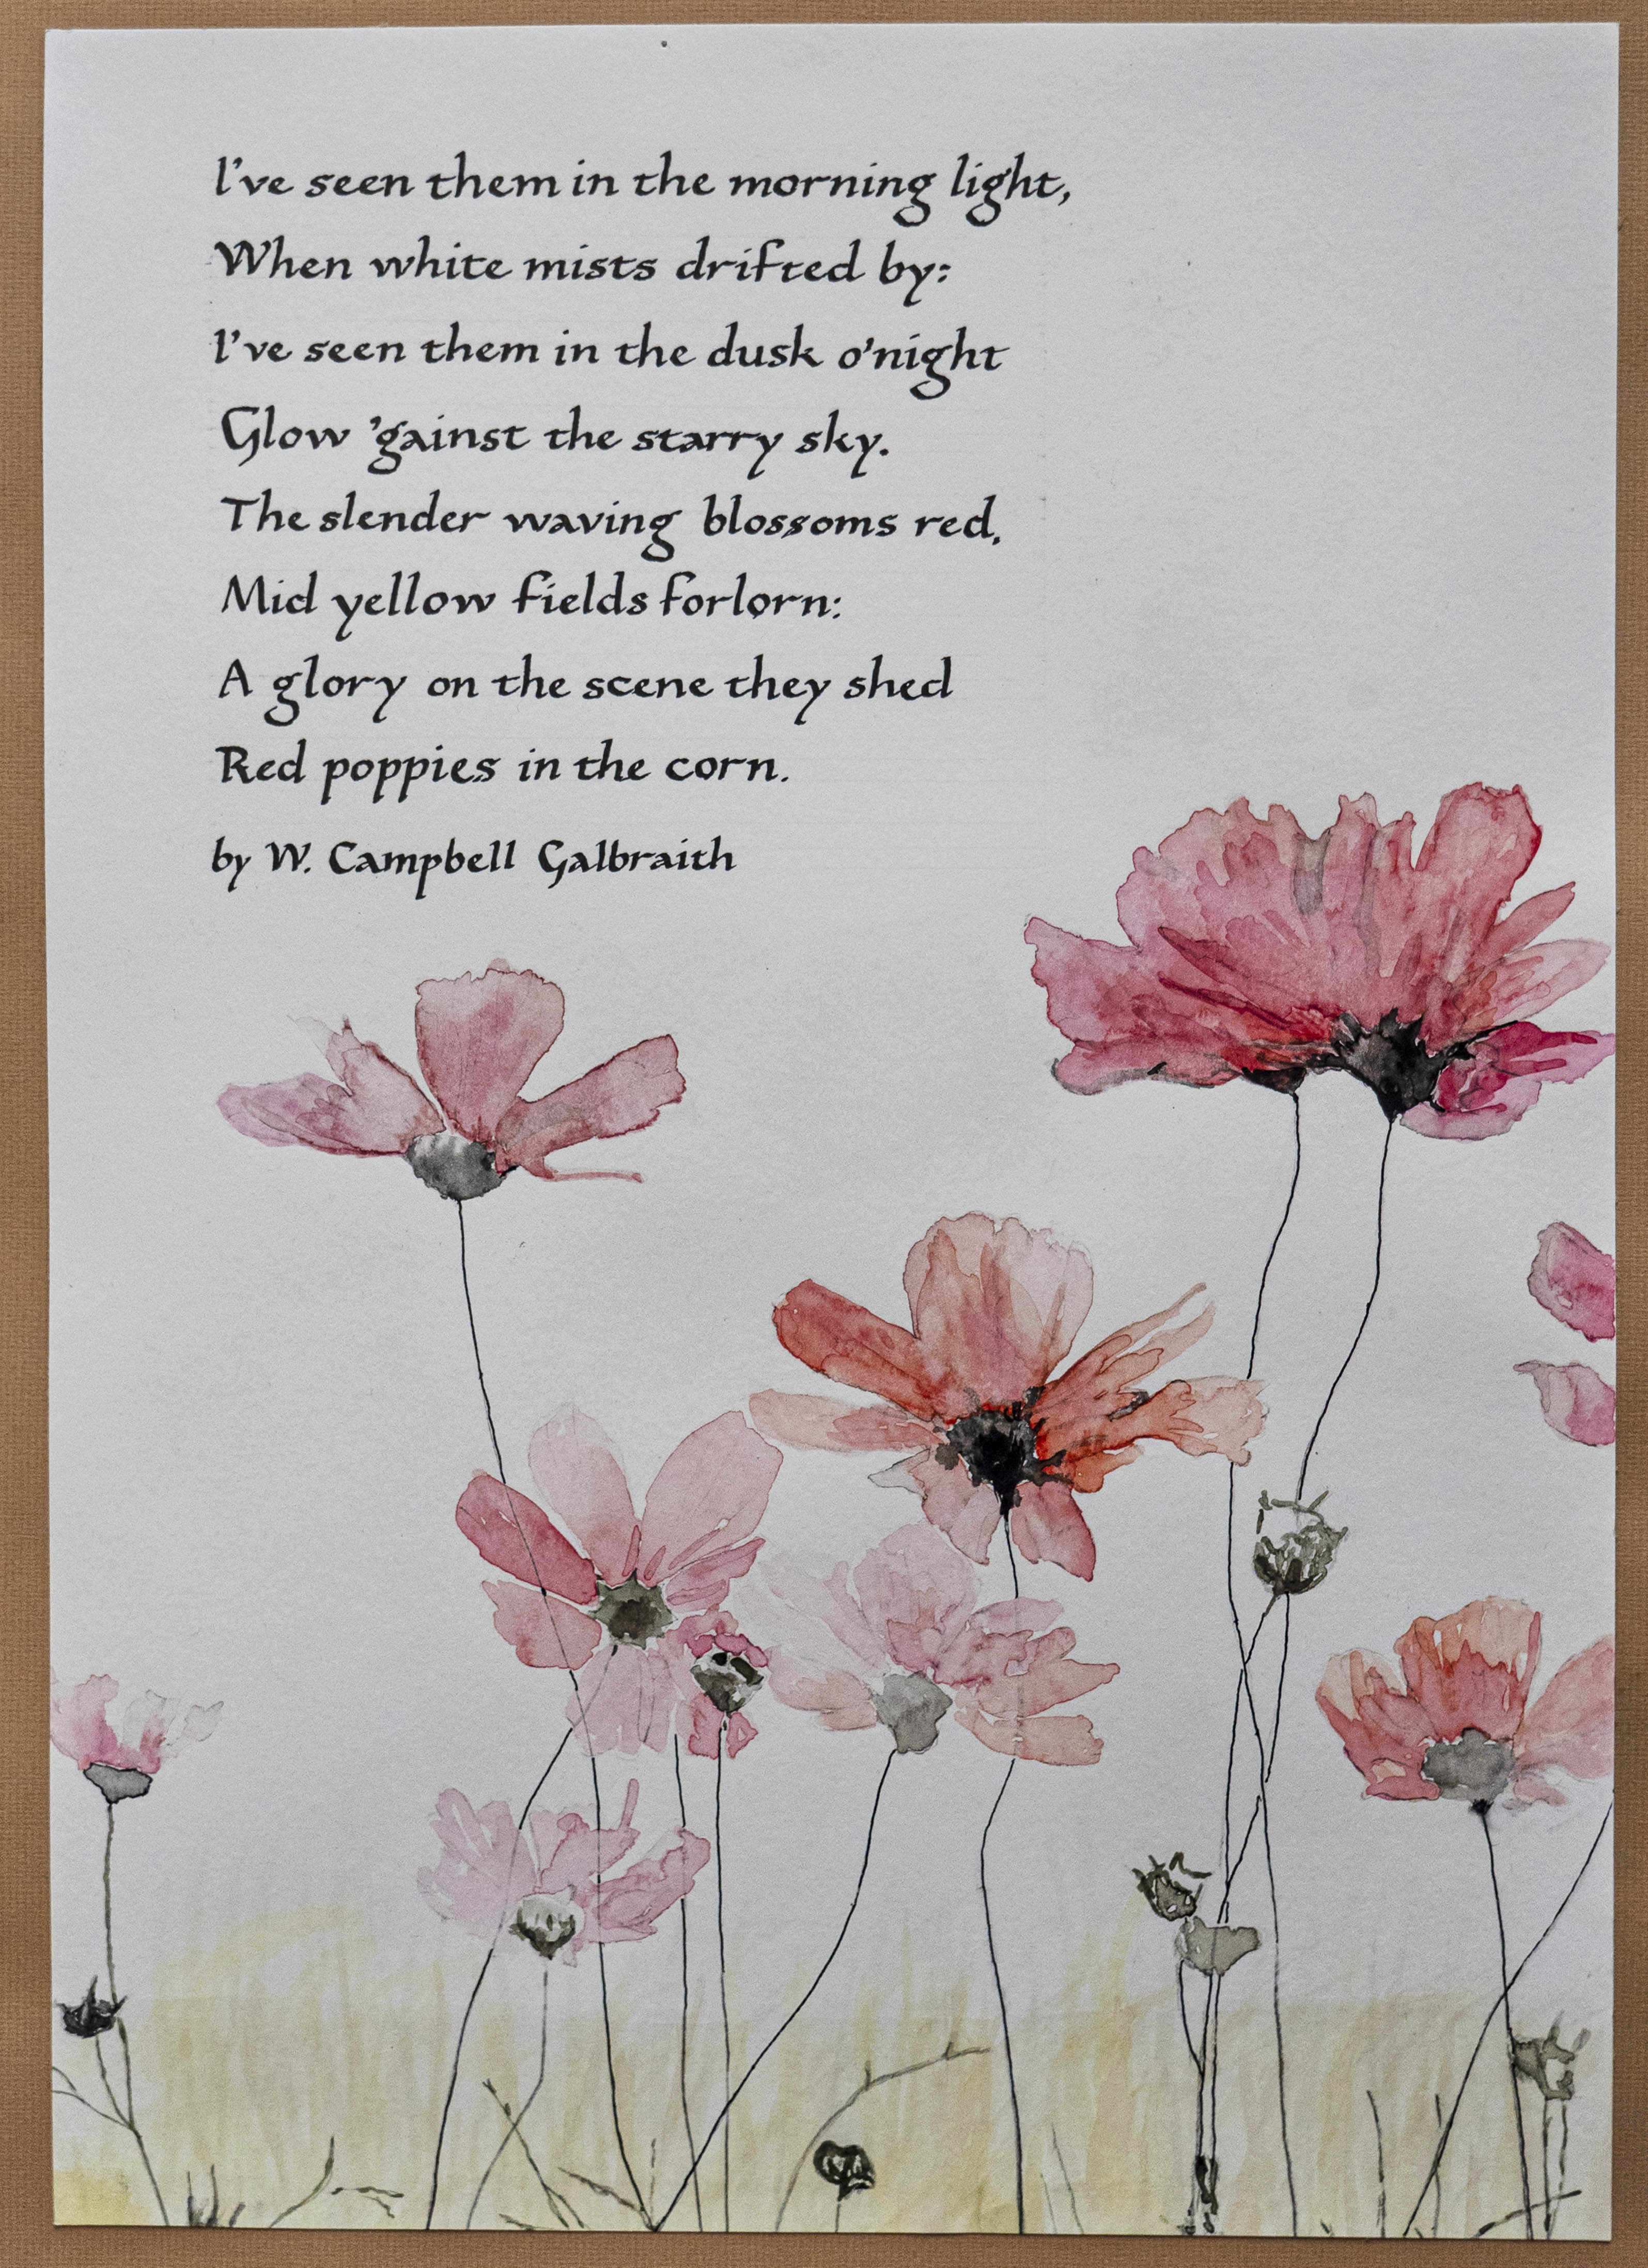 I've seen them in the morning light,
When white mists drifted by:
I've seen them in the dusk o'night
Glow 'gainst the starry sky.
The slender waving blossoms red,
Mid yellow fields forlorn:
A glory on the scene they shed
Red poppies in the corn.
by W. Campbell Galbraith